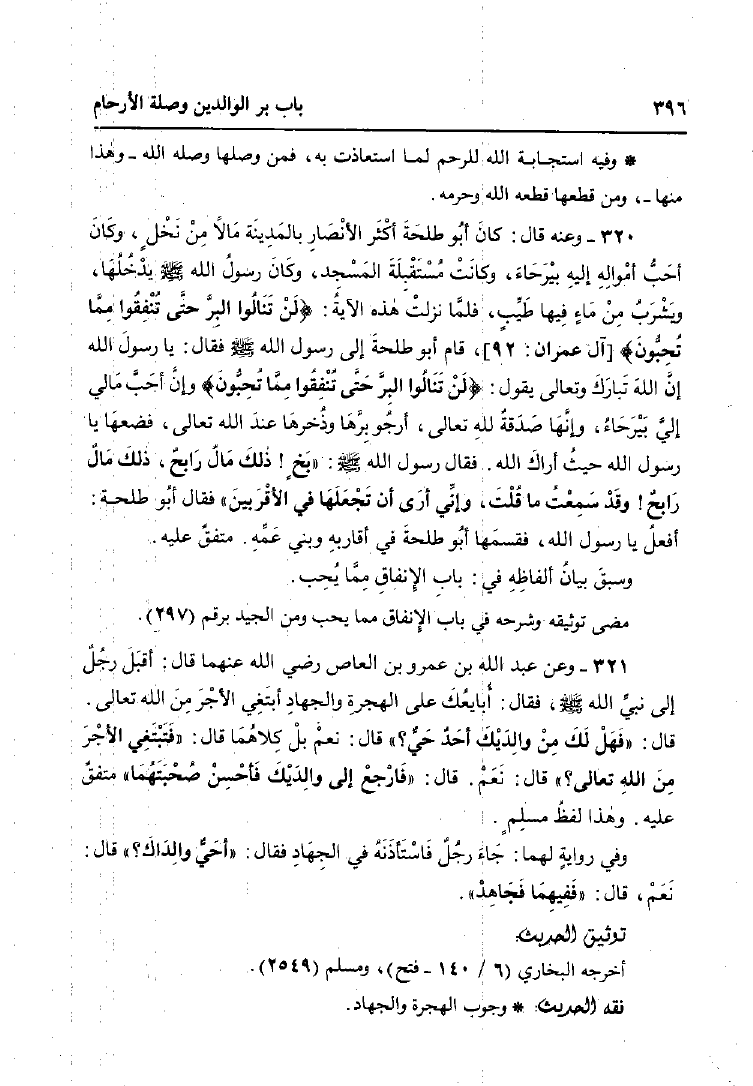 ٣٩٦ باب بر الوالدين وصلة الأرحام
* وفيه استجابة الله للرحم لما استعاذت به، فمن وصلها وصله الله ـ وهٰذا
منها ـ، ومن قطعها قطعه الله وحرمه.
٣٢٠ ـ وعنه قال: كانَ أبُو طلحةَ أكْثَر الأنْصَارِ بالمَدِينَةِ مَالاً مِنْ نَخْلٍ، وكَانَ
أحَبُّ أمْوالِهِ إليهِ بَيْرَحَاءَ، وكَانَتْ مُسْتَقْبِلَةَ المَسْجِدِ، وكَانَ رسُولُ الله ﷺ يدْخُلُهَا،
ويَشْرَبُ مِنْ مَاءٍ فِيها طَيِّبٍ، فلمَّا نزلتْ هٰذه الآيةُ: ﴿لَنْ تَنَالُوا البِرَّ حتَّى تُنْفِقُوا مِمَّا
تُحِبُّونَ﴾ [آل عمران: ٩٢]، قام أبو طلحةَ إلى رسول الله ﷺ فقال: يا رسولَ الله
إنَّ اللهَ تبَارَكَ وتعالى يقول: ﴿لَنْ تَنَالُوا البِرَّ حَتَّى تُنْفِقُوا مِمَّا تُحِبُّونَ﴾ وإنَّ أحَبَّ مَالي
إليَّ بَيْرَحَاءُ، وإنَّهَا صَدَقةٌ للهِ تعالى، أرجُو بِرَّهَا وذُخرهَا عندَ الله تعالى، فضعهَا يا
رسول الله حيثُ أراكَ الله. فقال رسول الله ﷺ: «بَخٍ! ذلكَ مَالٌ رَابِحٌ، ذلكَ مَالٌ
رَابِحٌ! وقَدْ سَمِعْتُ ما قُلْتَ، وإنِّي أرَى أن تَجْعَلَهَا في الأقْرَبِينَ» فقال أبُو طلحة:
أفعلُ يا رسول الله، فقسمَها أبُو طلحةَ في أقاربِهِ وبني عَمِّهِ. متفقٌ عليه.
وسبقَ بيانُ ألفاظِهِ في: بابِ الإنفاقِ مِمَّا يُحِب.
مضى توثيقه وشرحه في باب الإنفاق مما يحب ومن الجيد برقم (٢٩٧).
٣٢١ ـ وعن عبد الله بن عمرو بن العاص رضي الله عنهما قال: أقبَلَ رجُلٌ
إلى نبيِّ الله ﷺ، فقال: أُبايعُكَ على الهجرةِ والجهادِ أبتَغِي الأجْرَ مِنَ الله تعالى.
قال: «فَهَلْ لَكَ مِنْ والِدَيْكَ أحَدٌ حَيٌّ؟» قال: نعمْ بلْ كِلاهُمَا قال: «فَتَبْتَغِي الأجْرَ
مِنَ اللهِ تعالى؟» قال: نَعَمْ. قال: «فَارْجِعْ إلى والِدَيْكَ فَأحْسِنْ صُحْبَتَهُمَا» متفقٌ
عليه. وهٰذا لفظُ مسلمٍ.
وفي روايةٍ لهما: جَاءَ رجُلٌ فَاسْتَأذَنَهُ في الجِهَادِ فقال: «أحَيٌّ والِدَاكَ؟» قال:
نَعَمْ، قال: «فَفِيهِمَا فَجَاهِدْ».
توثيق الحديث:
أخرجه البخاري (٦ / ١٤٠ ـ فتح)، ومسلم (٢٥٤٩).
فقه الحديث: * وجوب الهجرة والجهاد.